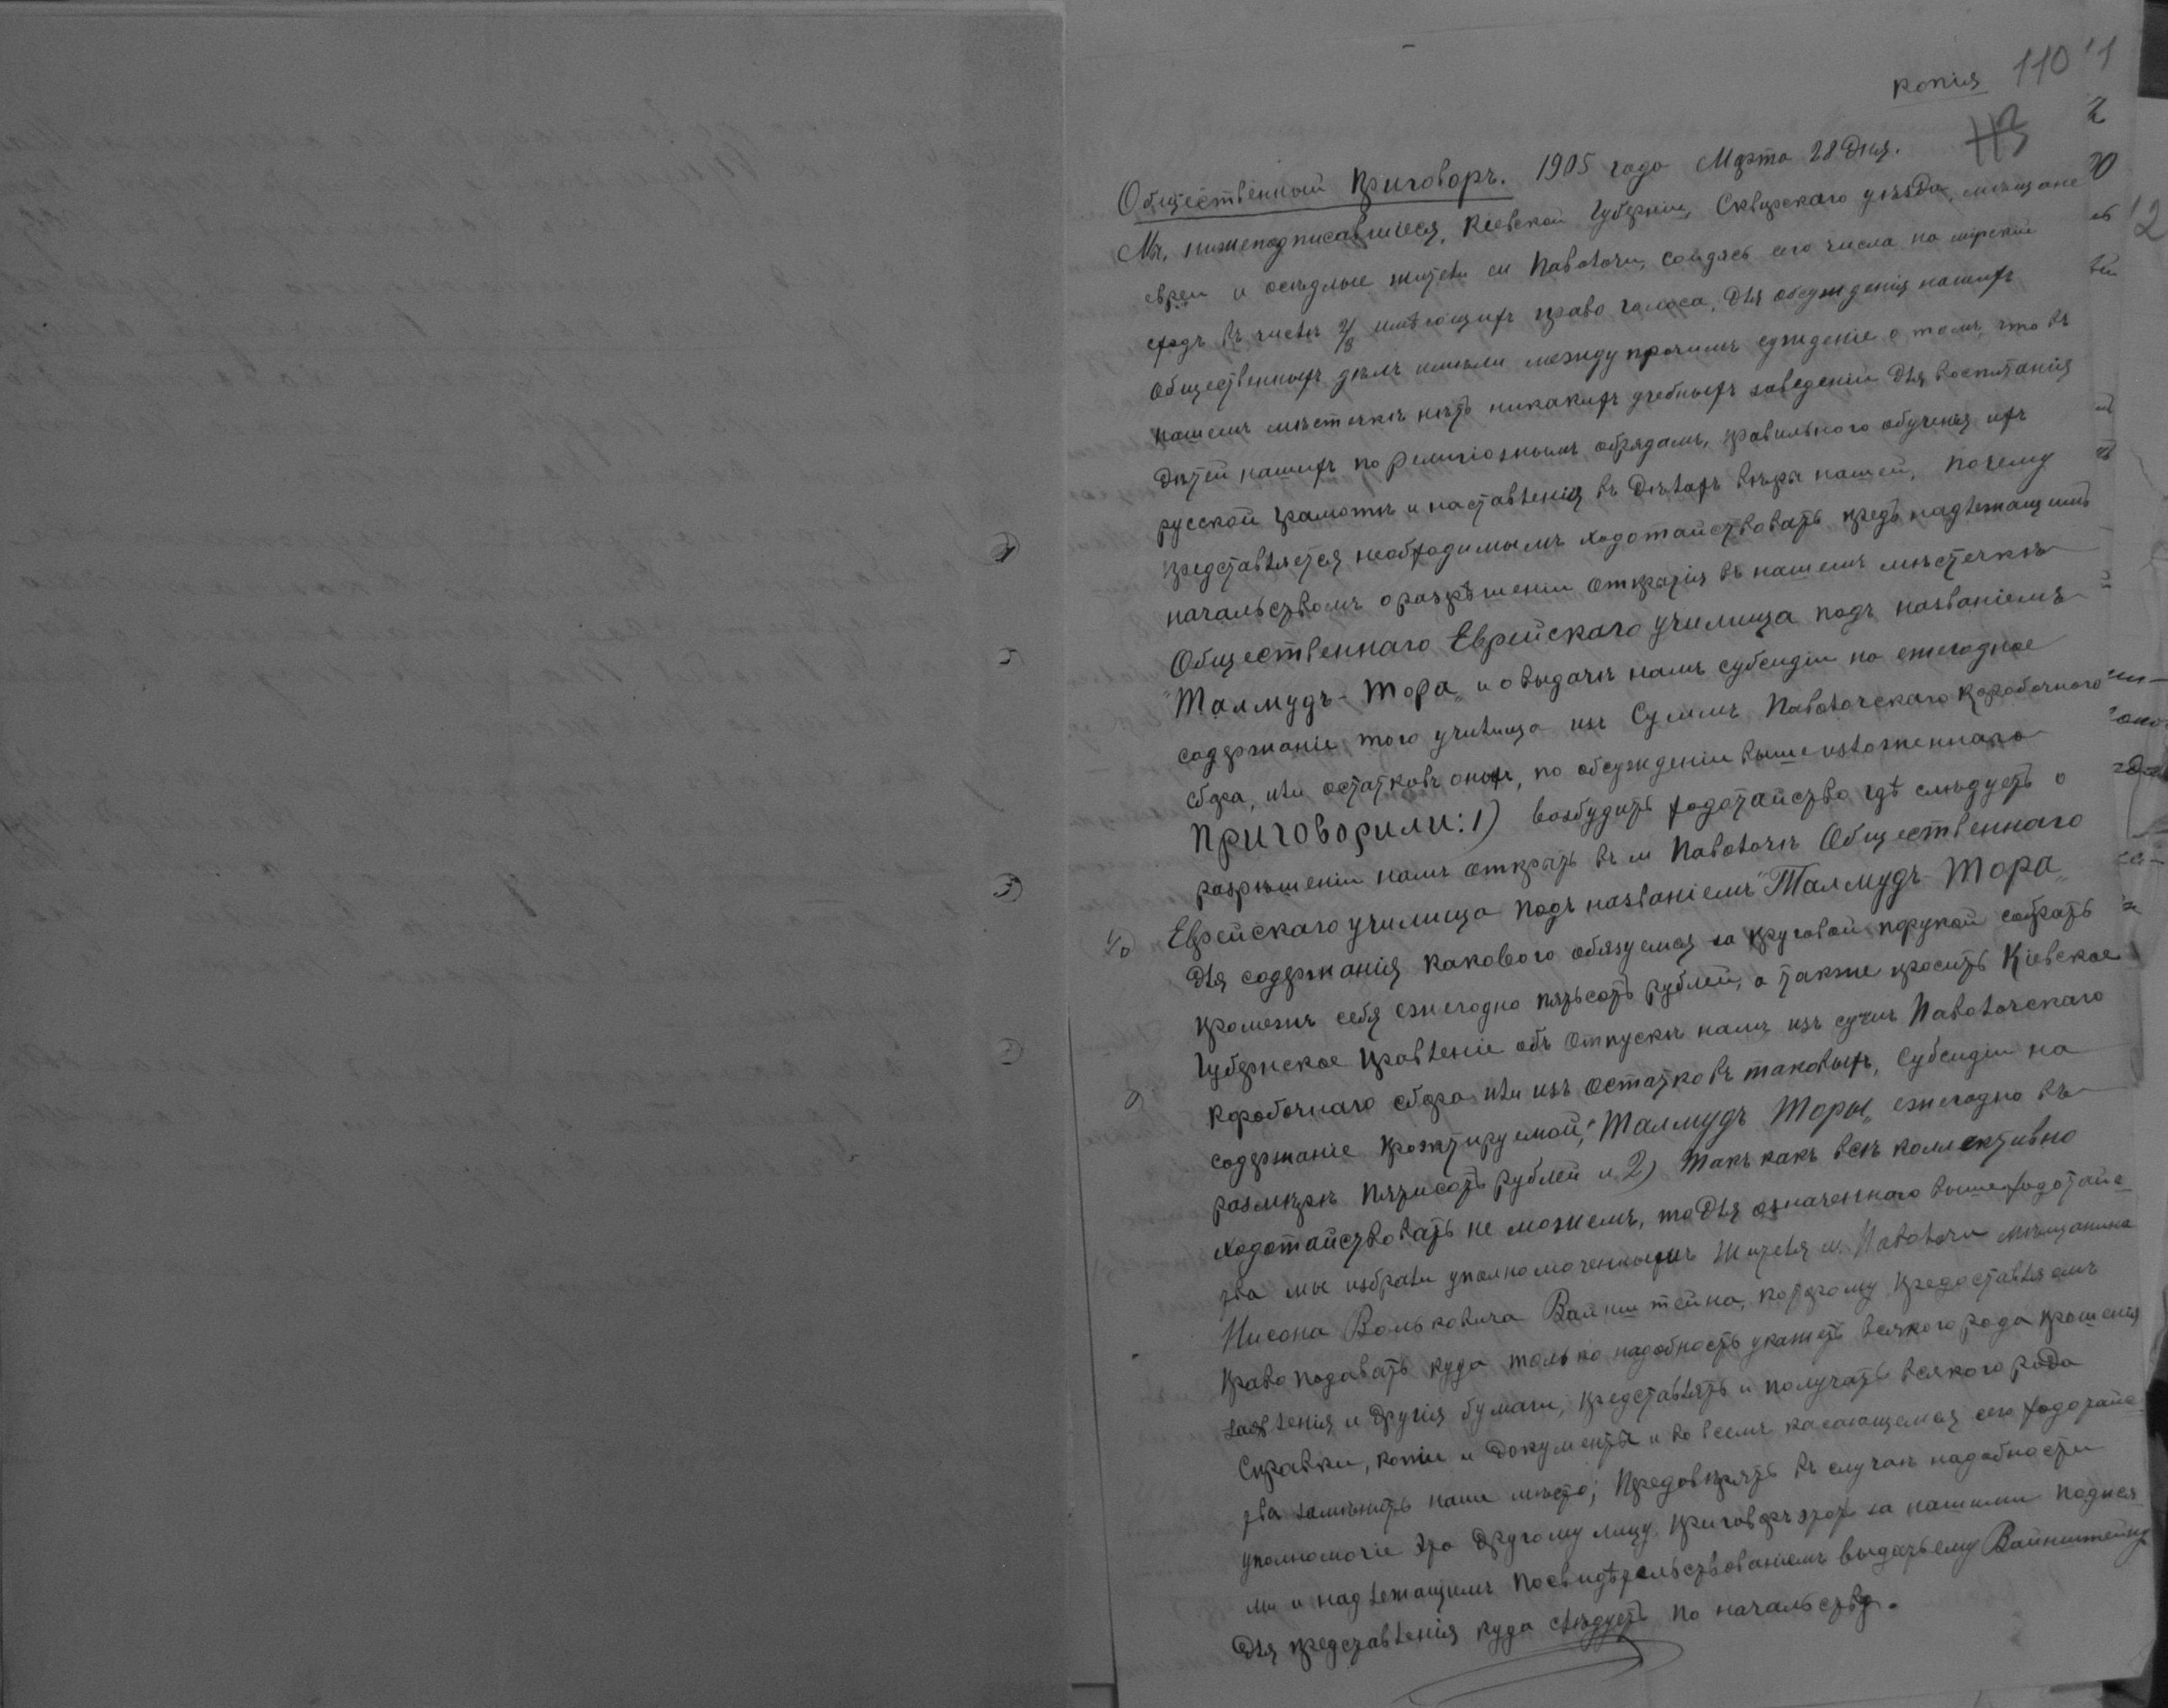 копія 110
113
Общественный Приговоръ. 1905 года Марта 28 Дня.
Мы, нижеподписавшіеся, Кіевской Губерніи, Сквирскаго уѣзда, мѣщане
евреи и осѣдлые жители м Паволочи, сойдясь сего числа на мірской
сходъ въ числѣ 2/3 имѣющихъ право голоса, для обсужденія нашихъ
Общественныхъ дѣлъ имѣли между прочимъ сужденіе о томъ, что въ
нашемъ мѣстечкѣ нѣтъ никакихъ учебныхъ заведеній для воспитанія
дѣтей нашихъ по религіознымъ обрядамъ, правильного обученія ихъ
русской грамотѣ и наставленія въ дѣлахъ вѣры нашей, почему
представляется необходимымъ ходотайствовать предъ надлежащимъ
начальствомъ о разрѣшеніи открытія въ нашемъ мѣстечкѣ
Общественнаго Еврейскаго училища подъ названіемъ
"Талмудъ-Тора„ и о выдачѣ намъ субсидіи на ежегодное
содержаніе того училища изъ Суммъ Паволочскаго Коробочного
сбора, или остатковъ оныхъ, по обсужденіи вышеизложеннаго
Приговорили: 1) возбудить ходотайство гдѣ слѣдуетъ о
разрѣшеніи намъ открыть въ м Паволочѣ Общественнаго
Еврейскаго училища подъ названіемъ "Талмудъ-Тора„
для содержанія какового обязуемся за круговой порукой собрать
промежъ себя ежегодно пятьсотъ рублей, а также просить Кіевское
Губернское Правленіе объ отпускѣ намъ изъ сумъ Паволочскаго
Коробочнаго сбора или изъ остатковъ таковыхъ, Субсидіи на
содержаніе проэктируемой, "Талмудъ Торы„ ежегодно въ
размѣрѣ пятисотъ рублей и 2) Такъ какъ всѣ коллективно
ходотайствовать не можемъ, то для означеннаго выше ходотайс-
тва мы избрали уполномоченнымъ жителя м. Паволочи мѣщанина
Нисона Вольковича Вайнштейна, которому предоставляемъ
право подавать куда только надобность укажетъ всякого рода прошенія
заявленія и другія бумаги, представлять и получать всякого рода
Справки, копіи и документы и во всемъ касающемся сего ходотайс-
тва замѣнять наше мѣсто; Передовѣрять въ случаѣ надобности
уполномочіе это другому лицу. Приговоръ этотъ за нашими подпися-
ми и надлежащимъ посвидѣтельствованіемъ выдать ему Вайнштейну
для представленія куда слѣдуетъ по начальству.